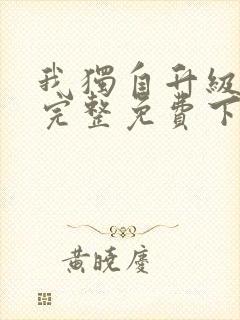 我獨自升級
完整免費下
黃曉慶